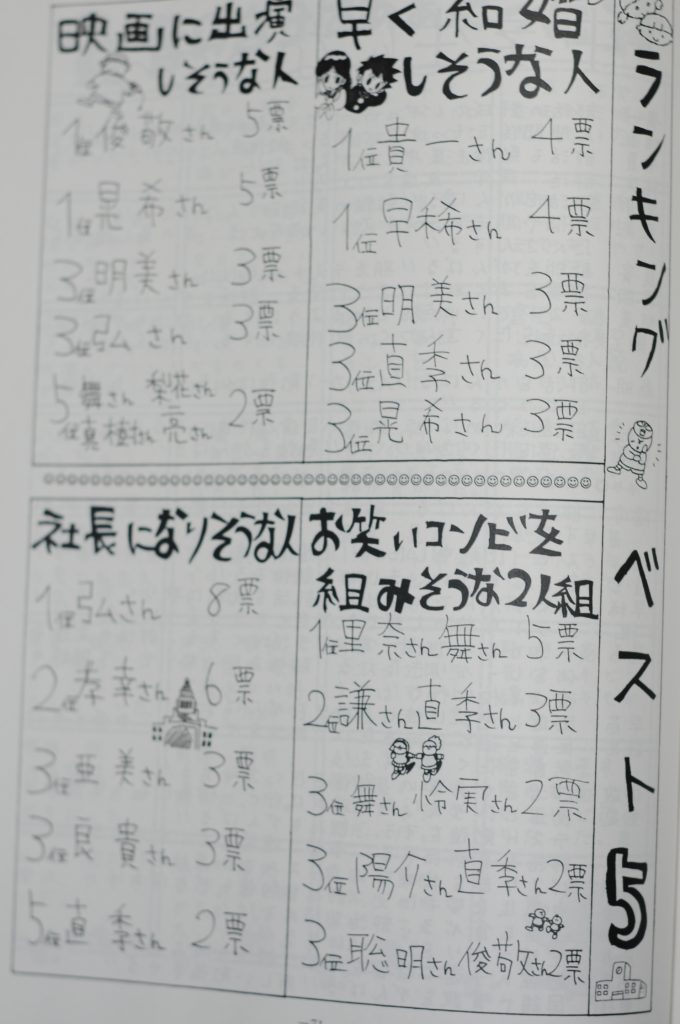 ランキング ベスト5
早く結婚
しそうな人
1位貴一さん 4票
1位早稀さん 4票
3位明美さん 3票
3位直季さん 3票
3位晃希さん 3票
映画に出演
しそうな人
1位俊敬さん 5票
1位晃希さん 5票
3位明美さん 3票
3位弘さん 3票
5位舞さん 梨花さん 2票
真植さん 亮さん
お笑いコンビを
組みそうな2人組
1位里奈さん舞さん 5票
2位謙さん直季さん 3票
3位舞さん怜実さん 2票
3位陽介さん直季さん 2票
3位聡明さん俊敬さん 2票
社長になりそうな人
1位弘さん 8票
2位孝幸さん 6票
3位亜美さん 3票
3位良貴さん 3票
5位直季さん 2票